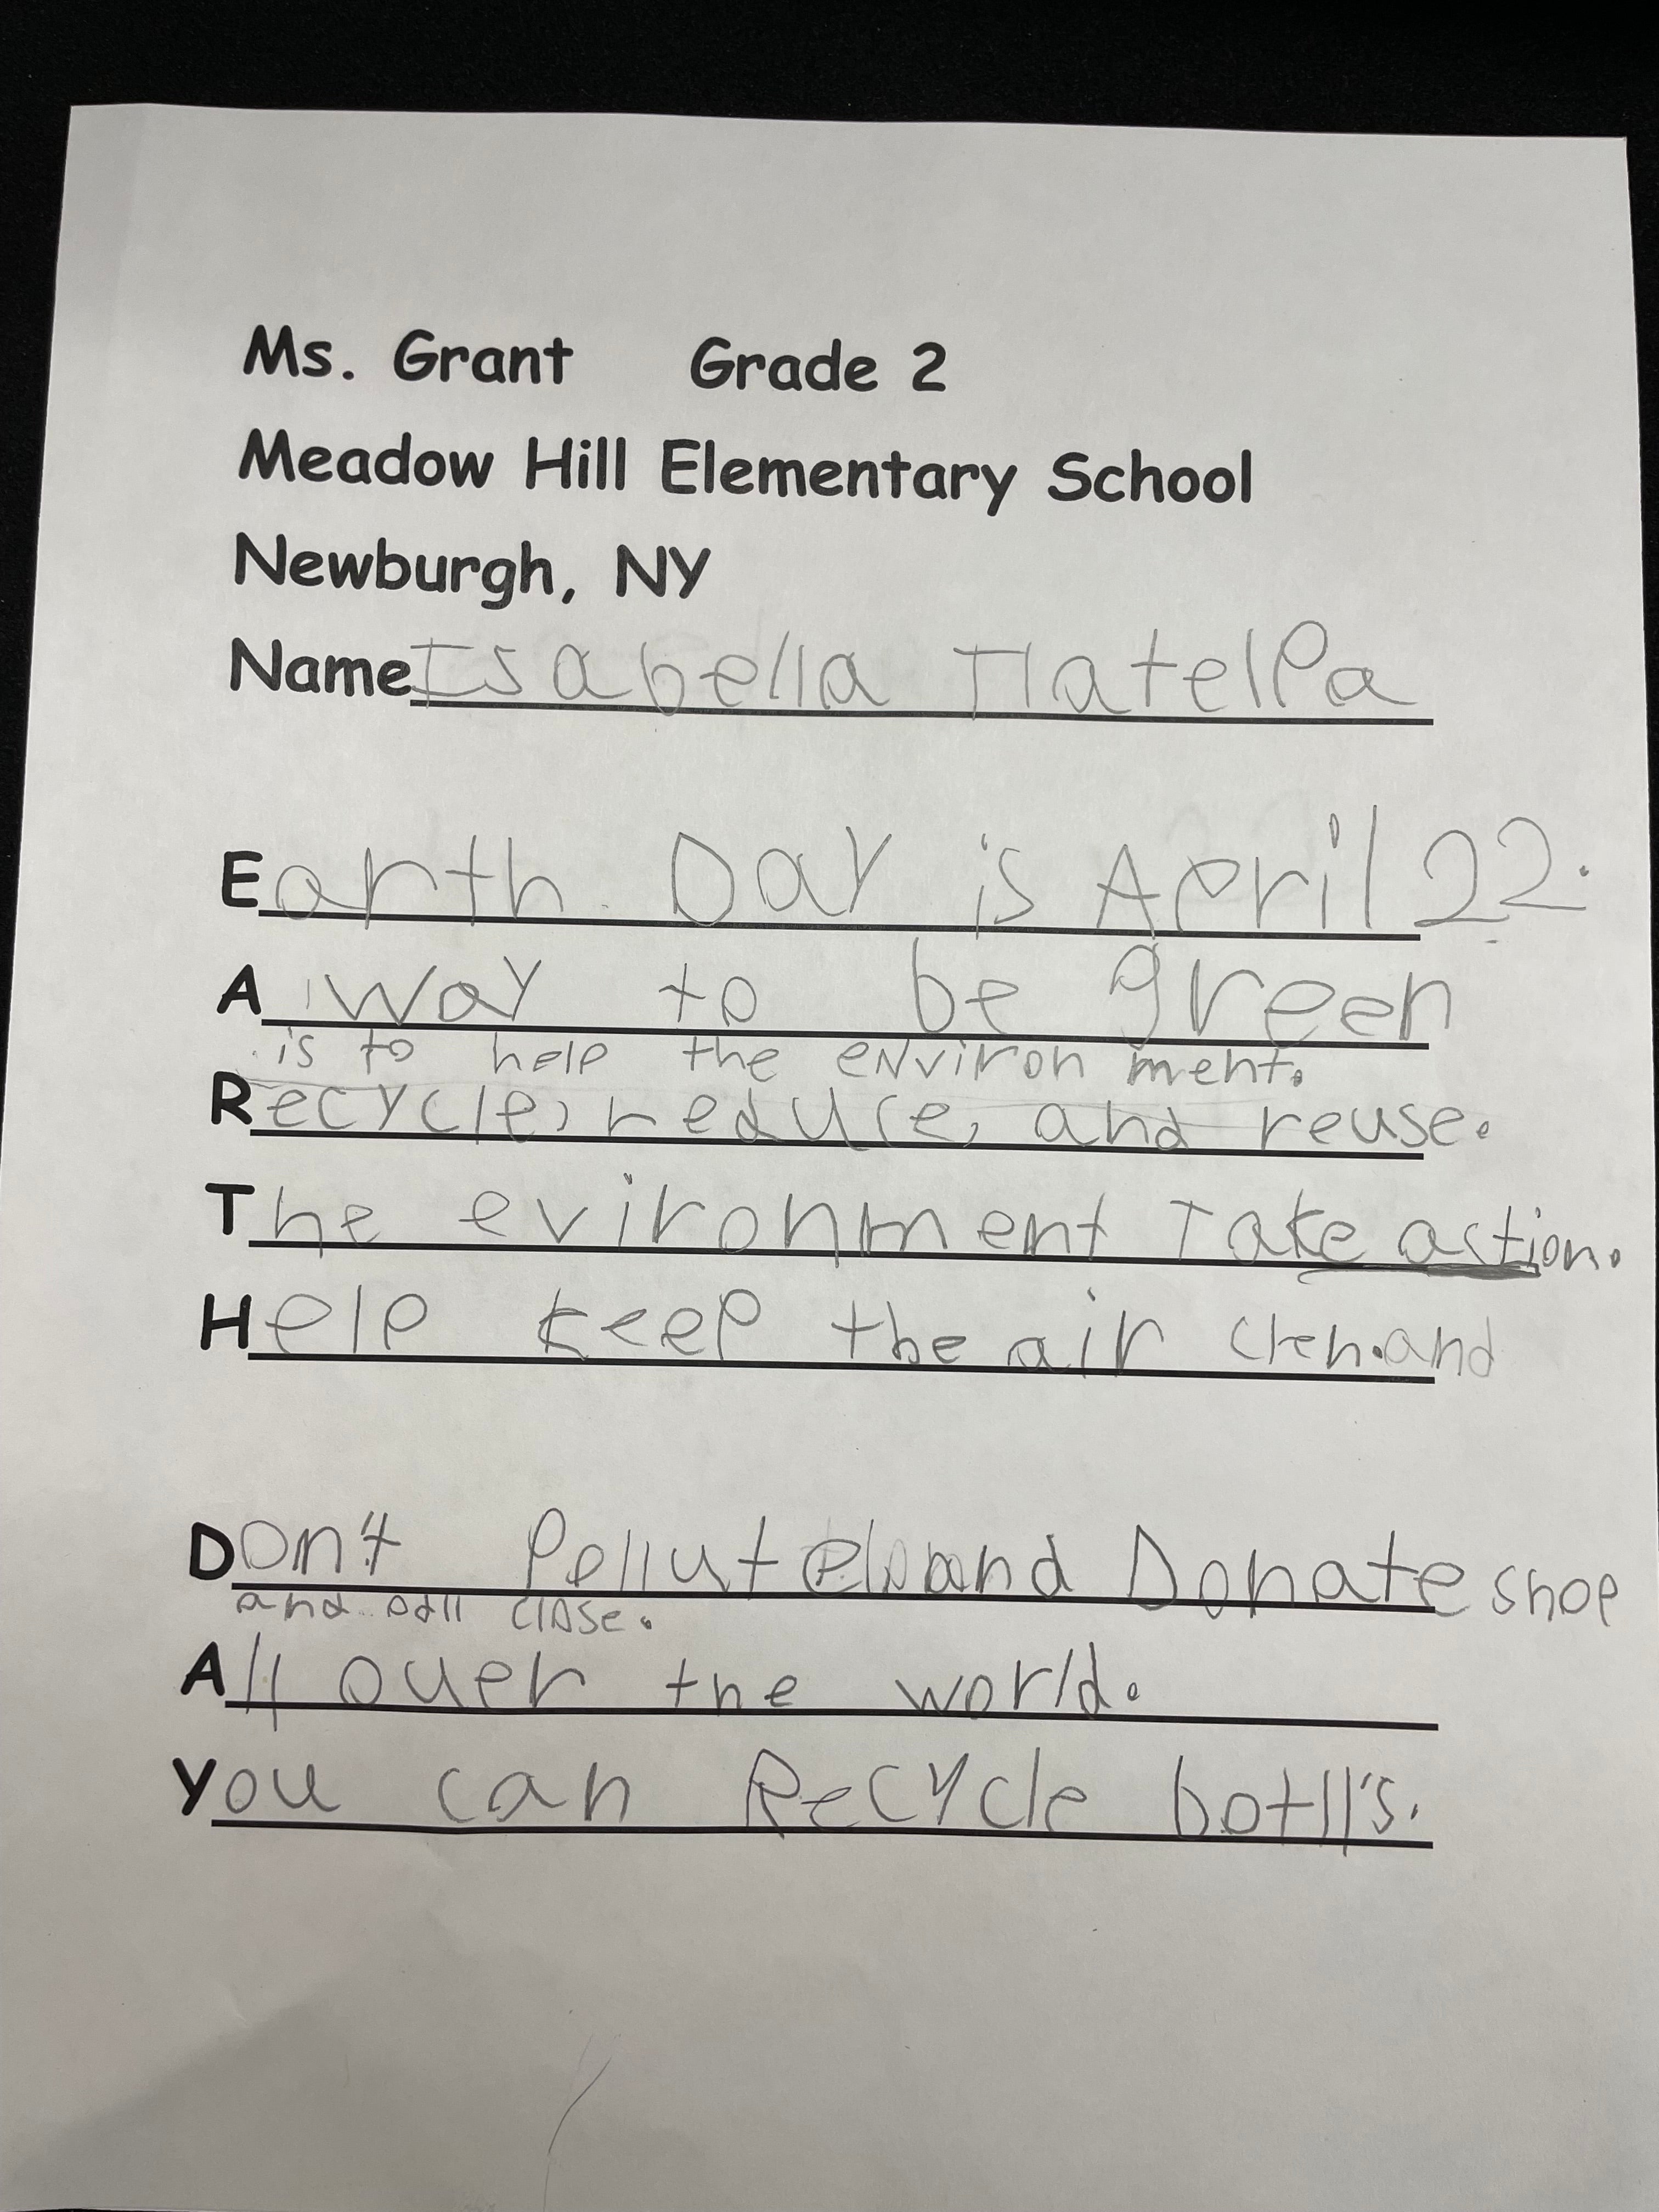 Ms. Grant Grade 2
Meadow Hill Elementary School
Newburgh, NY
Name Isabella Tlatelpa
Earth Day is April 22.
A way to be green
is to help the environment.
Recycle, reduce, and reuse.
The evironment Take action.
Help keep the air clen.and
Don't Pollute and Donate shoe
and close.
All over the world.
You can Recycle botll's.